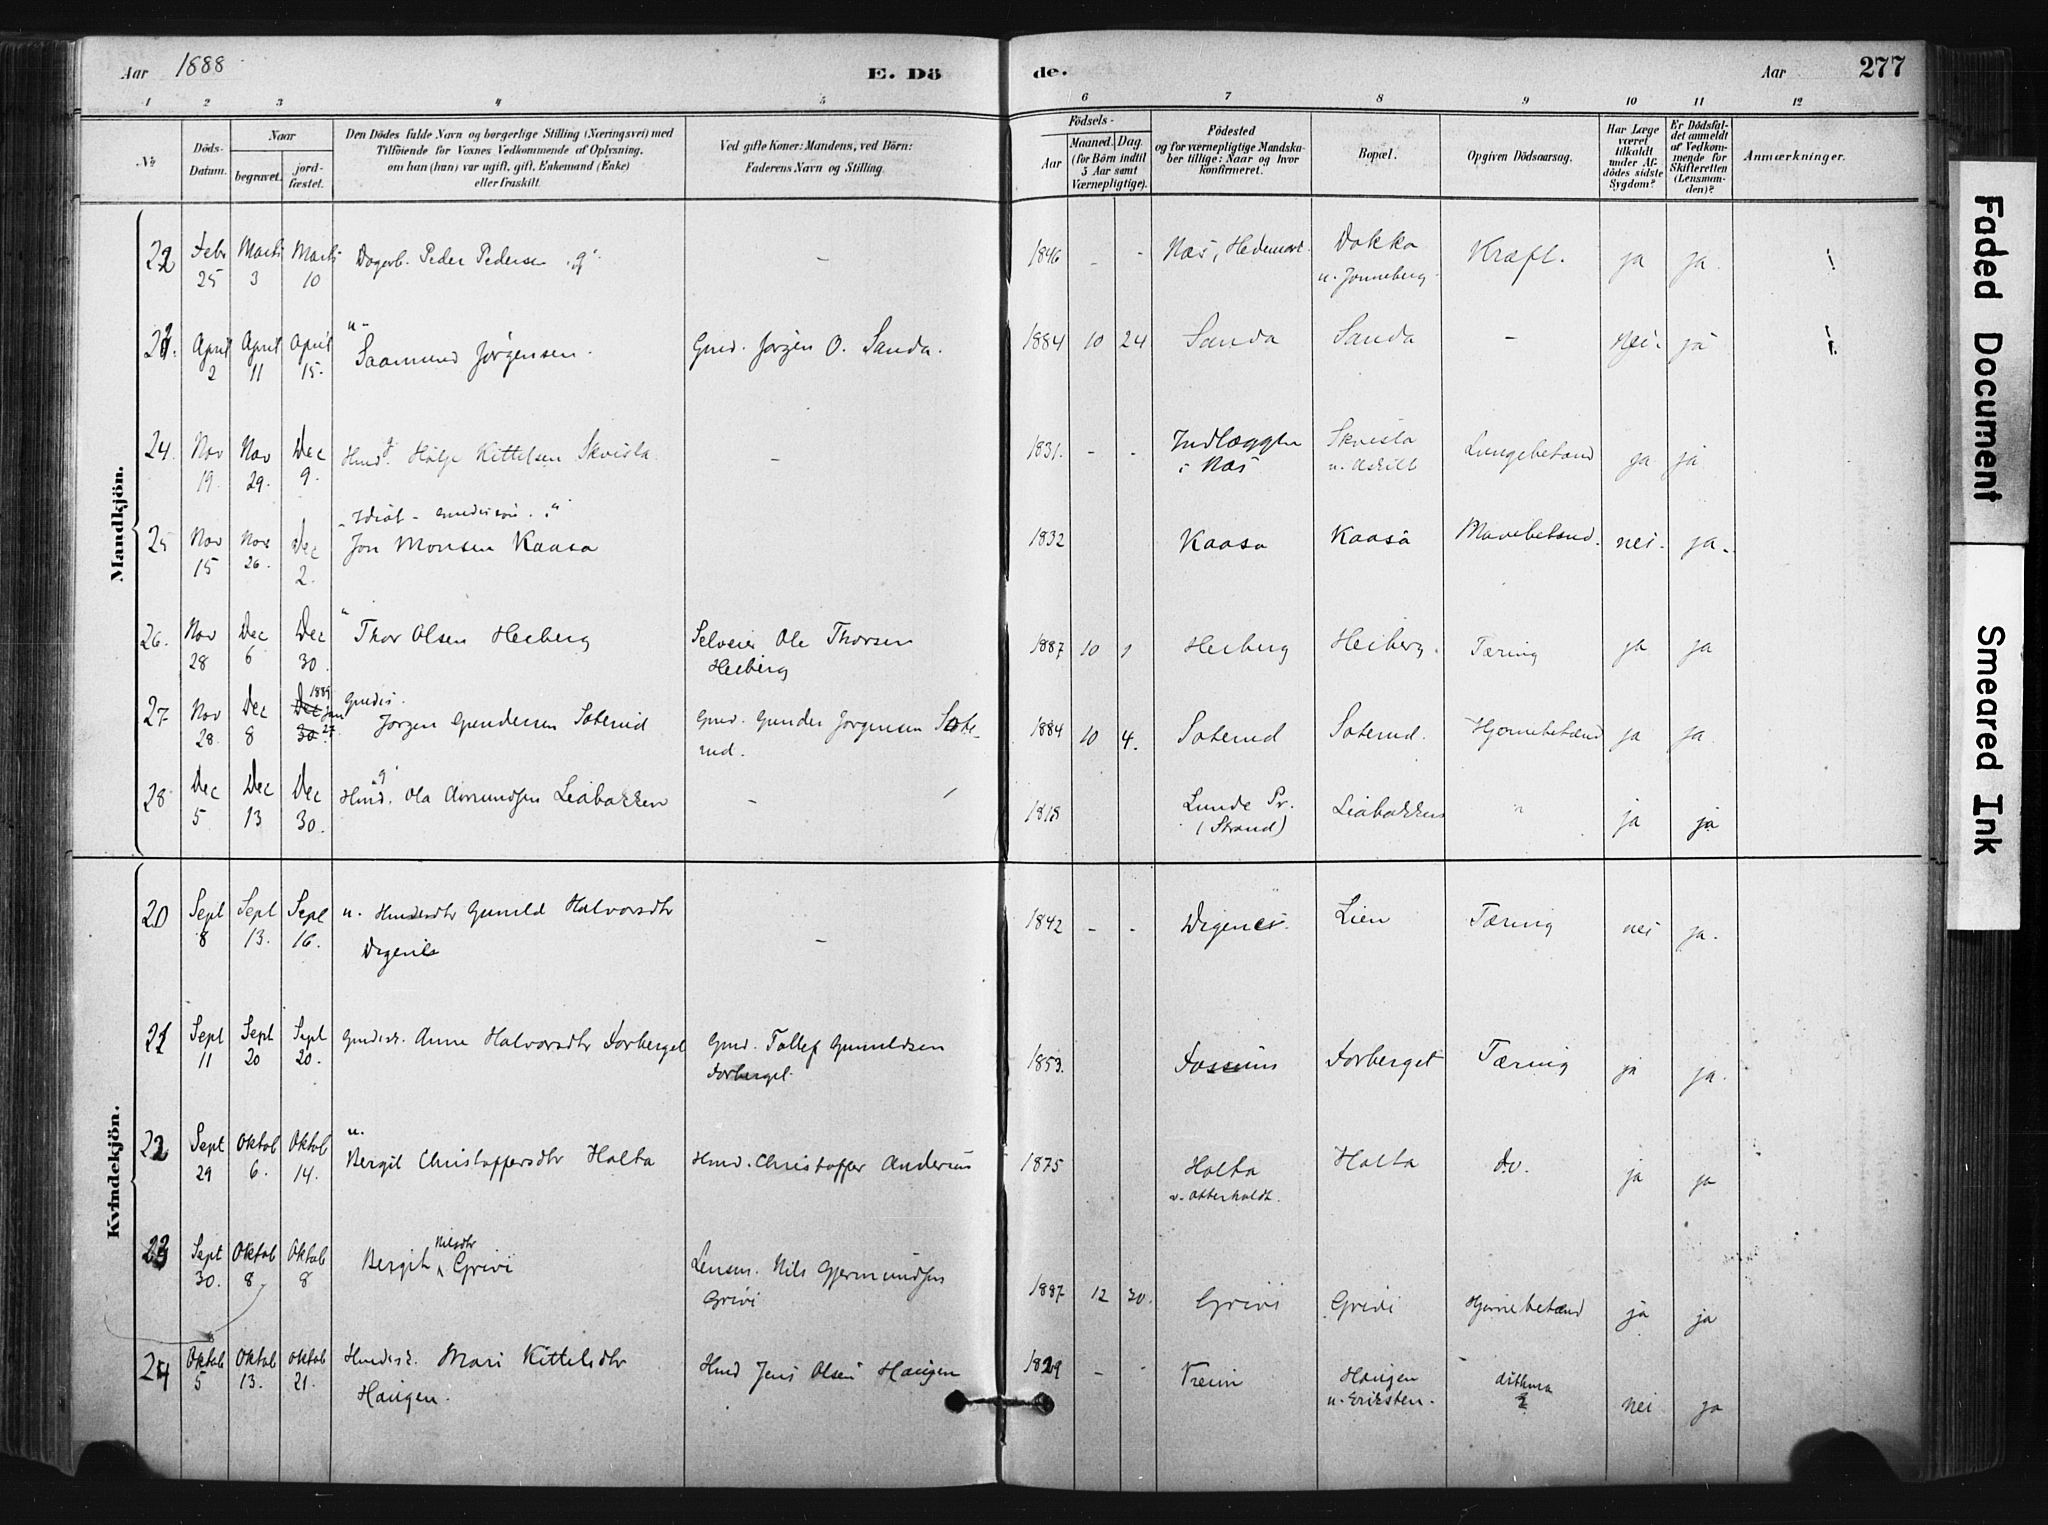 Aar 1888
E. Dö de.
Aar
277
1 2 3 4 5 6 7 8 9 10 11 12
No
Döds-Datum.
Naar
begravet.
jordfæstet.
Den Dödes fulde Navn og borgerlige Stilling (Næringsvei) med
Tilföiende for Voxnes Vedkommende af Oplysning,
om han (hun) var ugift, gift, Enkemand (Enke)
eller fraskilt.
Ved gifte Koner: Mandens, ved Börn:
Faderens Navn og Stilling.
Födsels-
Aar
Maaned. Dag.
(for Börn indtil
5 Aar samt
Værnepligtige).
Födested
og for værnepligtige Mandskaber tillige: Naar og hvor
konfirmeret.
Bopæl.
Opgiven Dödsaarsag.
Har Læge
været
tilkaldt
under Afdödes sidste
Sygdom?
Er Dödsfaldet anmeldt
af Vedkommende for
Skifteretten
(Lensmanden)?
Anmærkninger.
Mandkjön.
22 Febr 25 Marts 3 Marts 10 Dagarb. Peder Pedersen "g" - 1846 - - Nas, Hedemark Dokka u. Jonneberg Kræft. ja ja !
April 2 April 11 April 15. "u" Saamund Jørgensen. Gmd. Jørgen O. Sanda. 1884 10 24 Sanda Sanda - Nei. ja !
24. Nov 19. Nov 29. Dec 9. Hmd. g Hølje Kittelsen Skvisla. - 1831. - - Indlæggen i Nas Skvisla Lungebetænd ja ja
25 Nov 15 Nov 26. Dec 2. "Idiot - " Jon Monsen Kaasa 1832 Kaasa Kaasa Mavebetænd. nei. ja.
26. Nov 28 Dec 6 Dec 30. Thor Olsen Heiberg Selveier Ole Thorsen Heiberg 1887 10 1 Heiberg Heiberg. Tæring ja ja
27. Nov 28. Dec 8 Dec 30 1889 Jan 27. Gmdss. Jørgen Gundersen Soterud Gmd. Gunder Jørgensen Soterud. 1884 10 4. Soterud Soterud. Hjernebetænd ja ja.
28. Dec 5 Dec 13 Dec 30. Hmd. "g" Ola Amundsen Leabakken - 1818 Lunde Pr. (Strand) Leabakken " ja ja
Kvindekjön.
20 Sept 8 Sept 13. Sept 16. u. Gunild Halvorsdtr Digenes - 1842 - - Digenes. Lien Tæring nei ja.
21 Sept 11 Sept 20 Sept 20. Anne Halvorsdtr Dorberget Gmd. Tollef Gunuldsen Dorberget. 1853. Dorberget Tæring ja ja.
22 Sept 29 Oktob 6. Oktob 14. u. Bergit Christoffersdtr Holta Hmd. Christoffer Andersen 1875 Holta v. Otterholdt. Holta do. ja ja
23 Sept 30. Oktob 8 Oktob 8 Bergit Nilsdtr Grivi Lensm. Nils Gjermundsen Grivi 1887 12 30. Grivi Grivi Hjernebetænd ja ja
24 Oktob 5 Oktob 13. Oktob 21. Mari Kittelsdtr Haugen. Hmd Jens Olsen Haugen 1829 - - Vreim Haugen u. Eriksten. Asthma nei ja
Faded Document
Smeared Ink